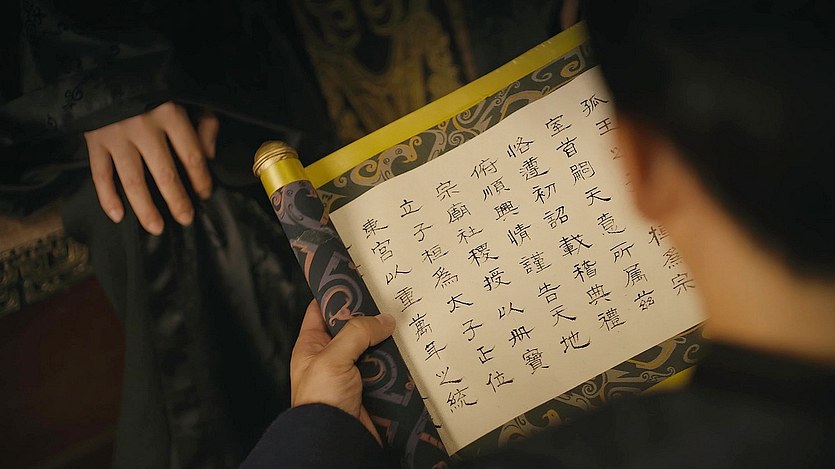 孤王爲宗
室首嗣天意所屬茲
恪遵初詔載稽典禮
俯順興情謹告天地
宗廟社稷授以册寶
立子桓為太子正位
東宮以重萬年之統